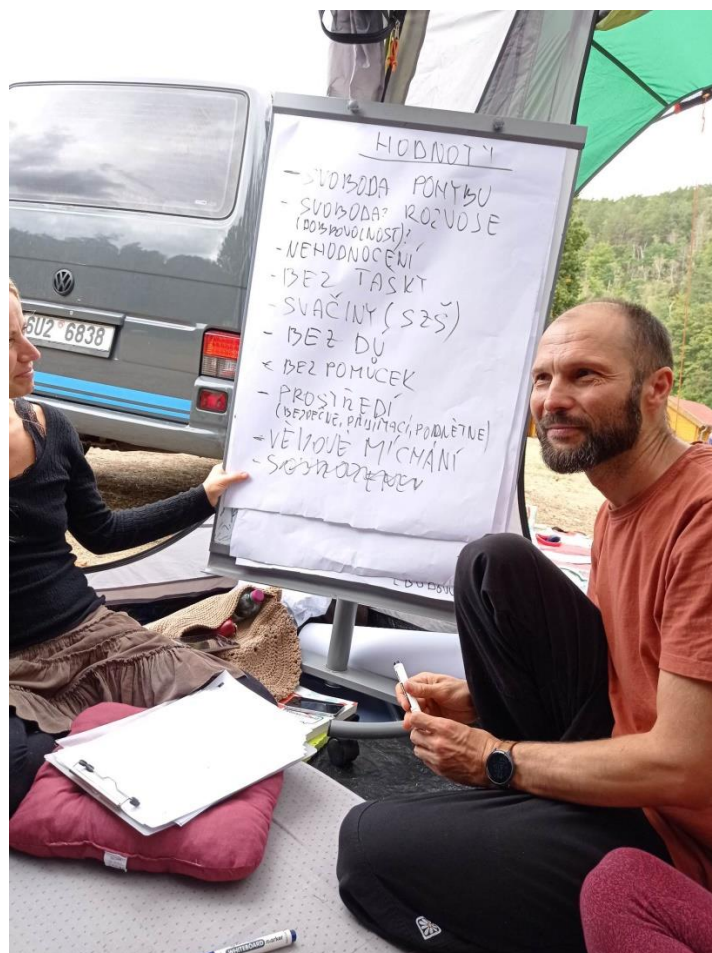 HODNOTY
- SVOBODA POHYBU
- SVOBODA? ROZVOJE
(DOBROVOLNOST)?
- NEHODNOCENÍ
- BEZ TAŠKY
- SVAČINY (SZŠ)
- BEZ DÚ
BEZ POMŮCEK
- PROSTŘEDÍ
(BEZPEČNÉ, PŘIJÍMACÍ, PODNĚTNÉ)
- VĚKOVÉ MÍCHÁNÍ
6U2 6838
WHITEBOARD marker